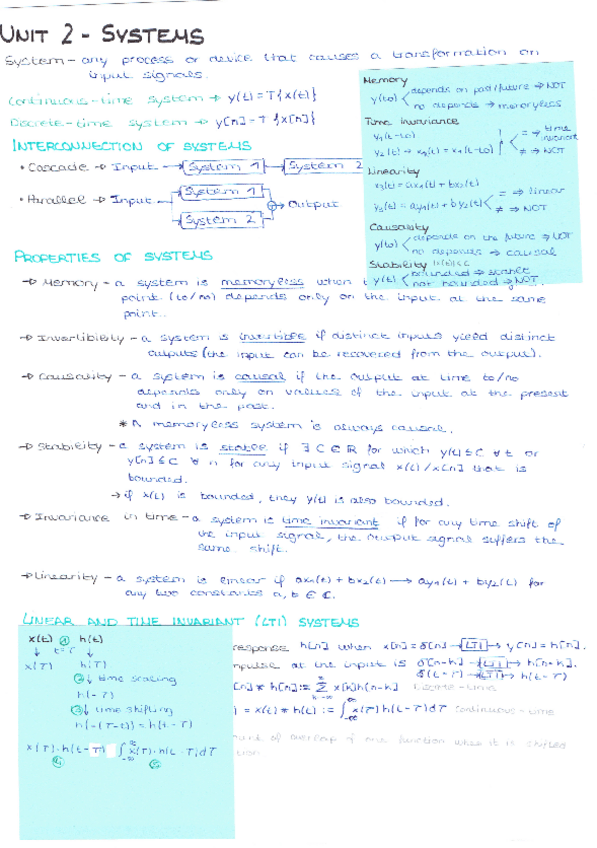 UNIT 2 - SYSTEMS
System - any process or device that causes a transformation on
input signals.
Continuous-time system → y(t) = T{x(t)}
Discrete-time system → y[n] = T{x[n]}
INTERCONNECTION OF SYSTEMS
• Cascade → Input → System 1 → System 2
• Parallel → Input
System 1
System 2
Output
Memory
y(to) depends on past/future → NOT
no depends → memoryless
Time invariance
y1(t-to)
y2(t) → x2(t) = x1(t-to)
= → time invariant
≠ → NOT
Linearity
x3(t) = ax1(t) + bx2(t)
y3(t) = ay1(t) + by2(t)
= → linear
≠ → NOT
Causality
y(to) depends on the future → NOT
no depends → causal
Stability
y(t) bounded → stable
not bounded → NOT
PROPERTIES OF SYSTEMS
→ Memory - a system is memoryless when
point (to/no) depends only on the input at the same
point.
→ Invertibility - a system is invertible if distinct inputs yield distinct
outputs (the input can be recovered from the output).
→ Causality - a system is causal if the output at time to/no
depends only on values of the input at the present
and in the past.
* A memoryless system is always causal.
→ Stability - a system is stable if ∃ C ∈ ℝ for which y(t) ≤ C ∀ t or
y[n] ≤ C ∀ n for any input signal x(t)/x[n] that is
bounded.
→ if x(t) is bounded, they y(t) is also bounded.
→ Invariance in time - a system is time invariant if for any time shift of
the input signal, the output signal suffers the
same shift.
→ Linearity - a system is linear if ax1(t) + bx2(t) → ay1(t) + by2(t) for
any two constants a, b ∈ ℂ.
LINEAR AND TIME INVARIANT (LTI) SYSTEMS
x(t) ① h(t)
↓ t=τ ↓
x(τ) h(τ)
② ↓ time scaling
h(-τ)
③ ↓ time shifting
h(-(τ-t)) = h(t-τ)
x(τ)·h(t-τ) ∫ x(τ)·h(t-τ)dτ
④ ⑤
response h[n] when x[n] = δ[n] → LTI → y[n] = h[n].
impulse at the input is δ[n-k] → LTI → h[n-k].
δ(t-τ) → LTI → h(t-τ)
[n] * h[n] := Σ x[k]h[n-k]
) = x(t) * h(t) := ∫ x(τ)h(t-τ)dτ continuous-time
of overlap of one function when it is shifted